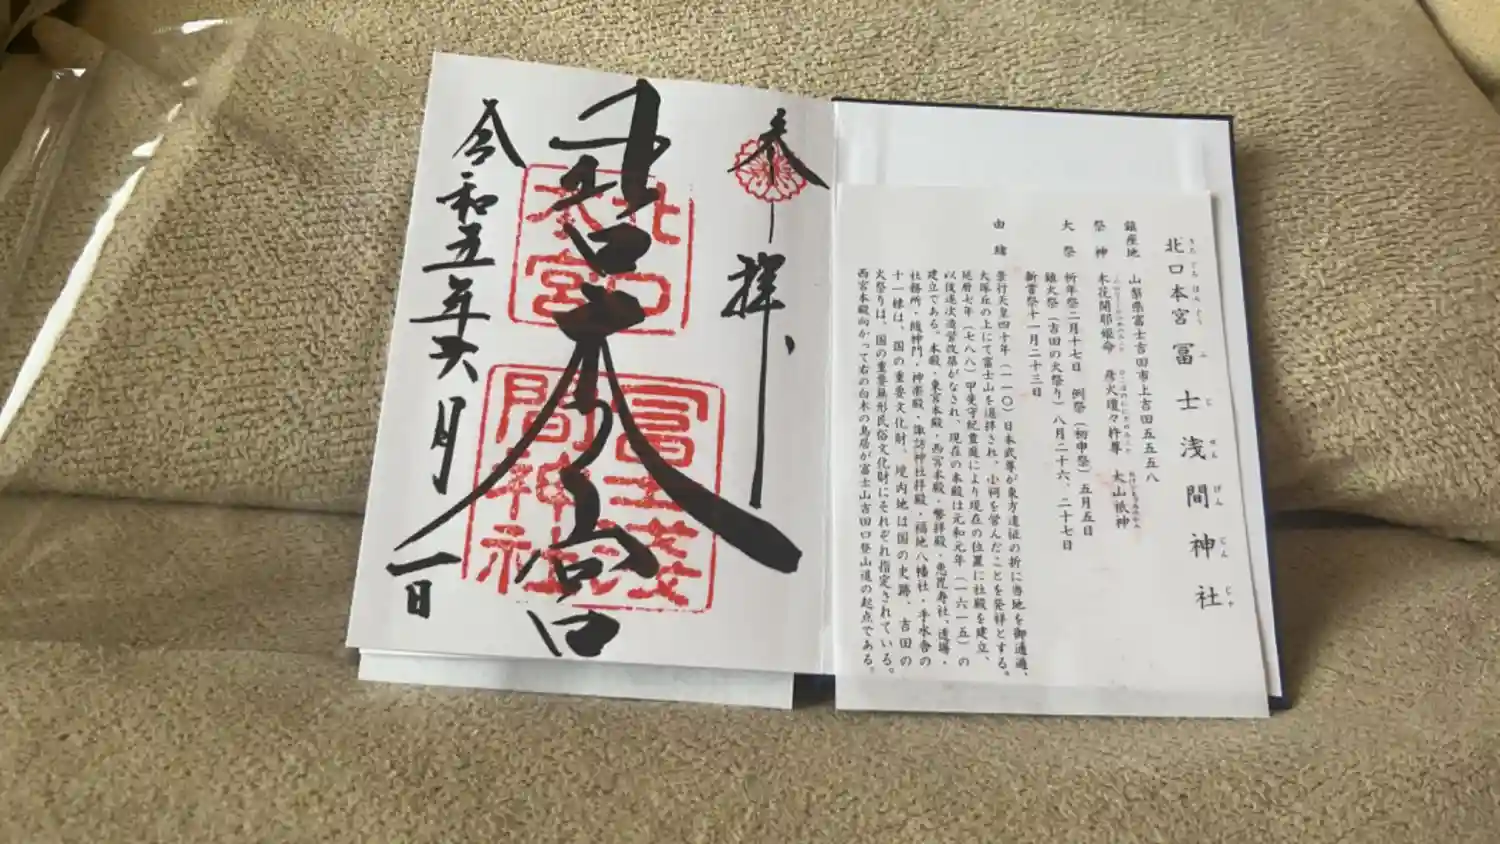 きたぐちほんぐうふじせんげんじんじゃ
北口本宮冨士浅間神社
鎮座地 山梨県富士吉田市上吉田五五五八
祭神 木花開耶姫命 彦火瓊々杵尊 大山祇神
大祭 祈年祭二月十七日 例祭(初申祭)五月五日
鎮火祭(吉田の火祭り)八月二十六、二十七日
新嘗祭十一月二十三日
由緒 景行天皇四十年(一一〇)日本武尊が東方遠征の折に当地を御通過、
大塚丘の上にて富士山を遥拝され、小祠を営んだことを発祥とする。
延暦七年(七八八)甲斐守紀豊庭により現在の位置に社殿を建立、
以後逐次造営改築がなされ、現在の本殿は元和元年(一六一五)の
建立である。本殿・東宮本殿・西宮本殿・幣拝殿・恵毘寿社、透塀・
社務所・随神門・神楽殿・諏訪神社拝殿・福地八幡社・手水舎の
十一棟は、国の重要文化財、境内地は国の史跡、吉田の
火祭りは、国の重要無形民俗文化財にそれぞれ指定されている。
西宮本殿向かって右の白木の鳥居が富士山吉田口登山道の起点である。
奉拝
北口本宮
北口
本宮
冨士浅
間神社
令和五年六月一日